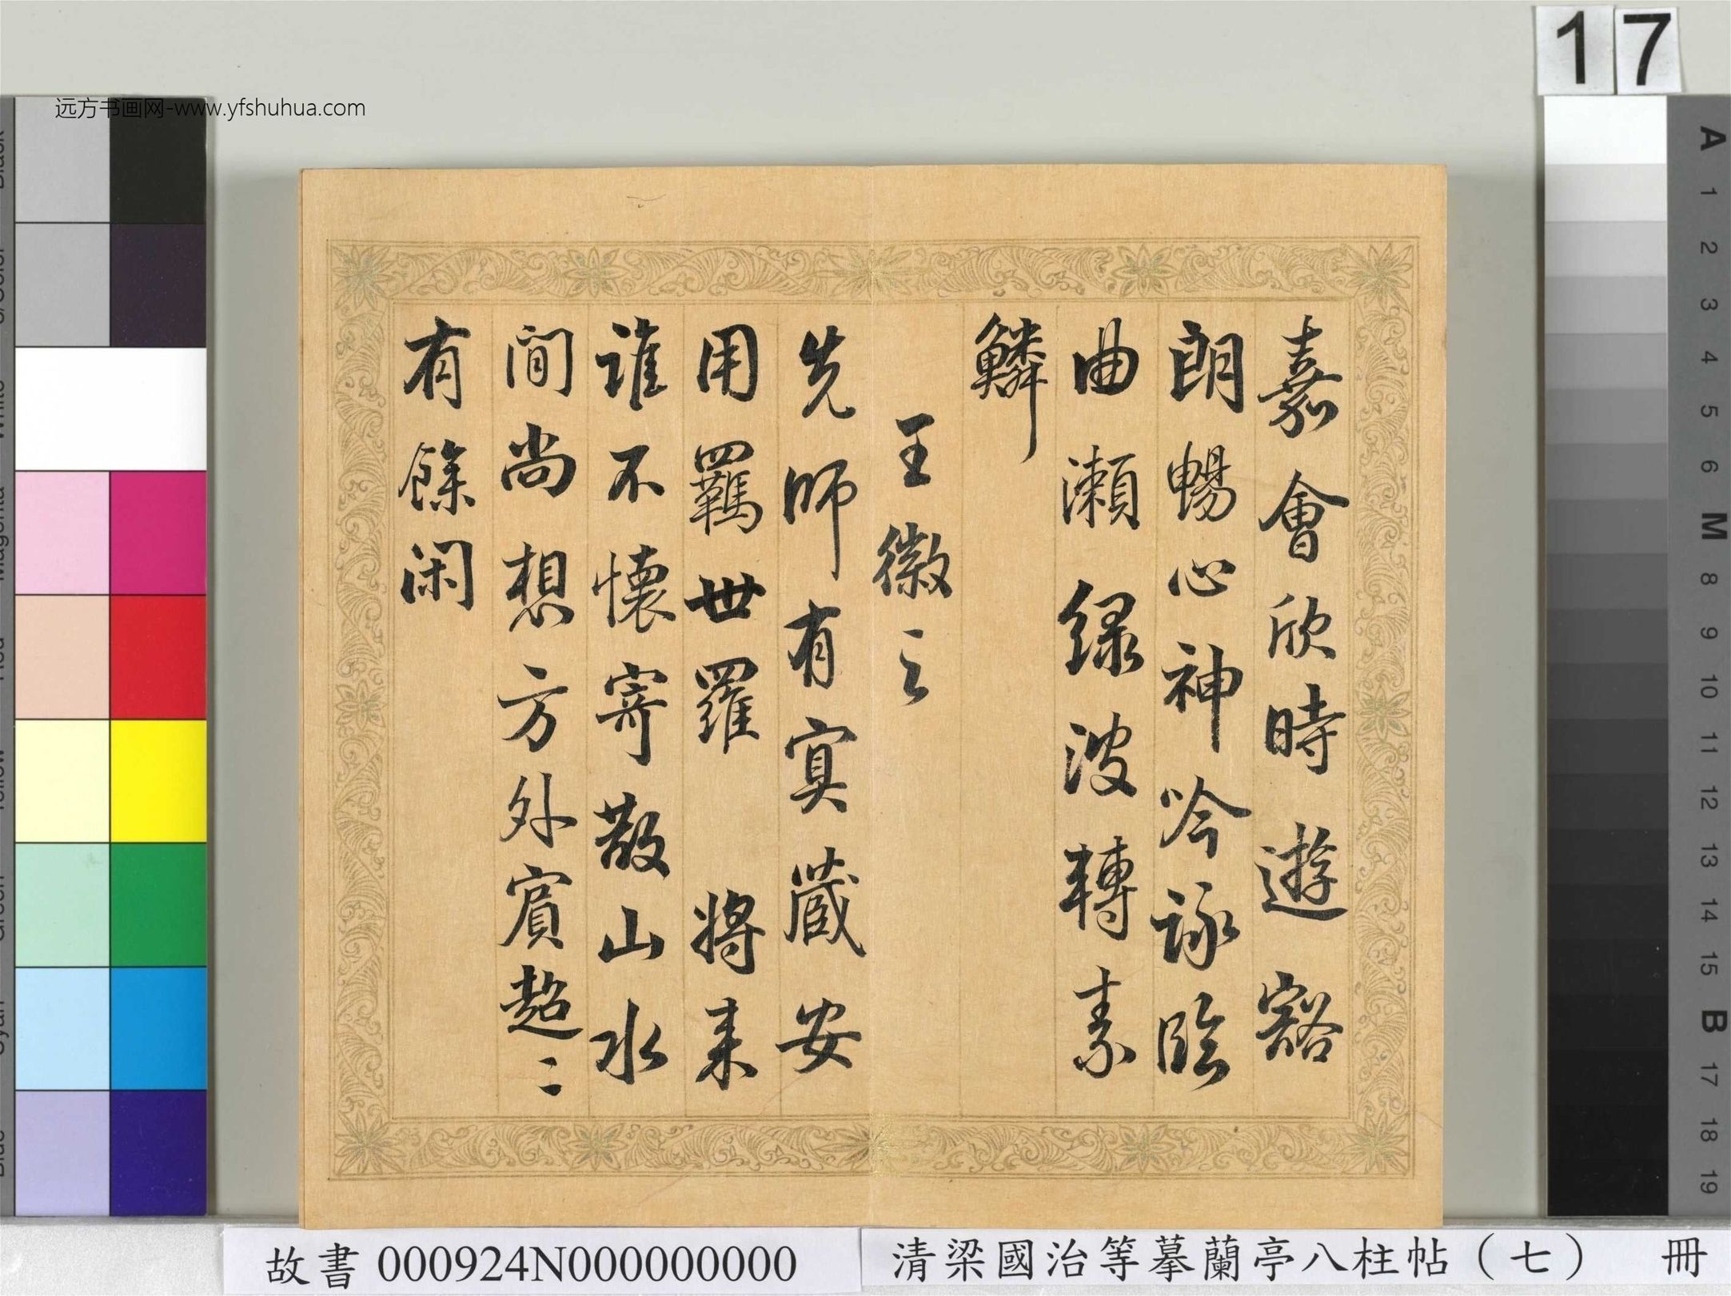 远方书画网-www.yfshuhua.com
17
嘉會欣時遊豁
朗暢心神吟詠臨
曲瀬緑波轉素
鱗
王徽之
先師有冥藏安
用羈世羅將来
誰不懷寄散山水
間尚想方外賔超〻
有餘閑
A
1
2
3
4
5
6
M
8
9
10
11
12
13
14
15
B
17
18
19
故書 000924N000000000
清梁國治等摹蘭亭八柱帖（七） 冊